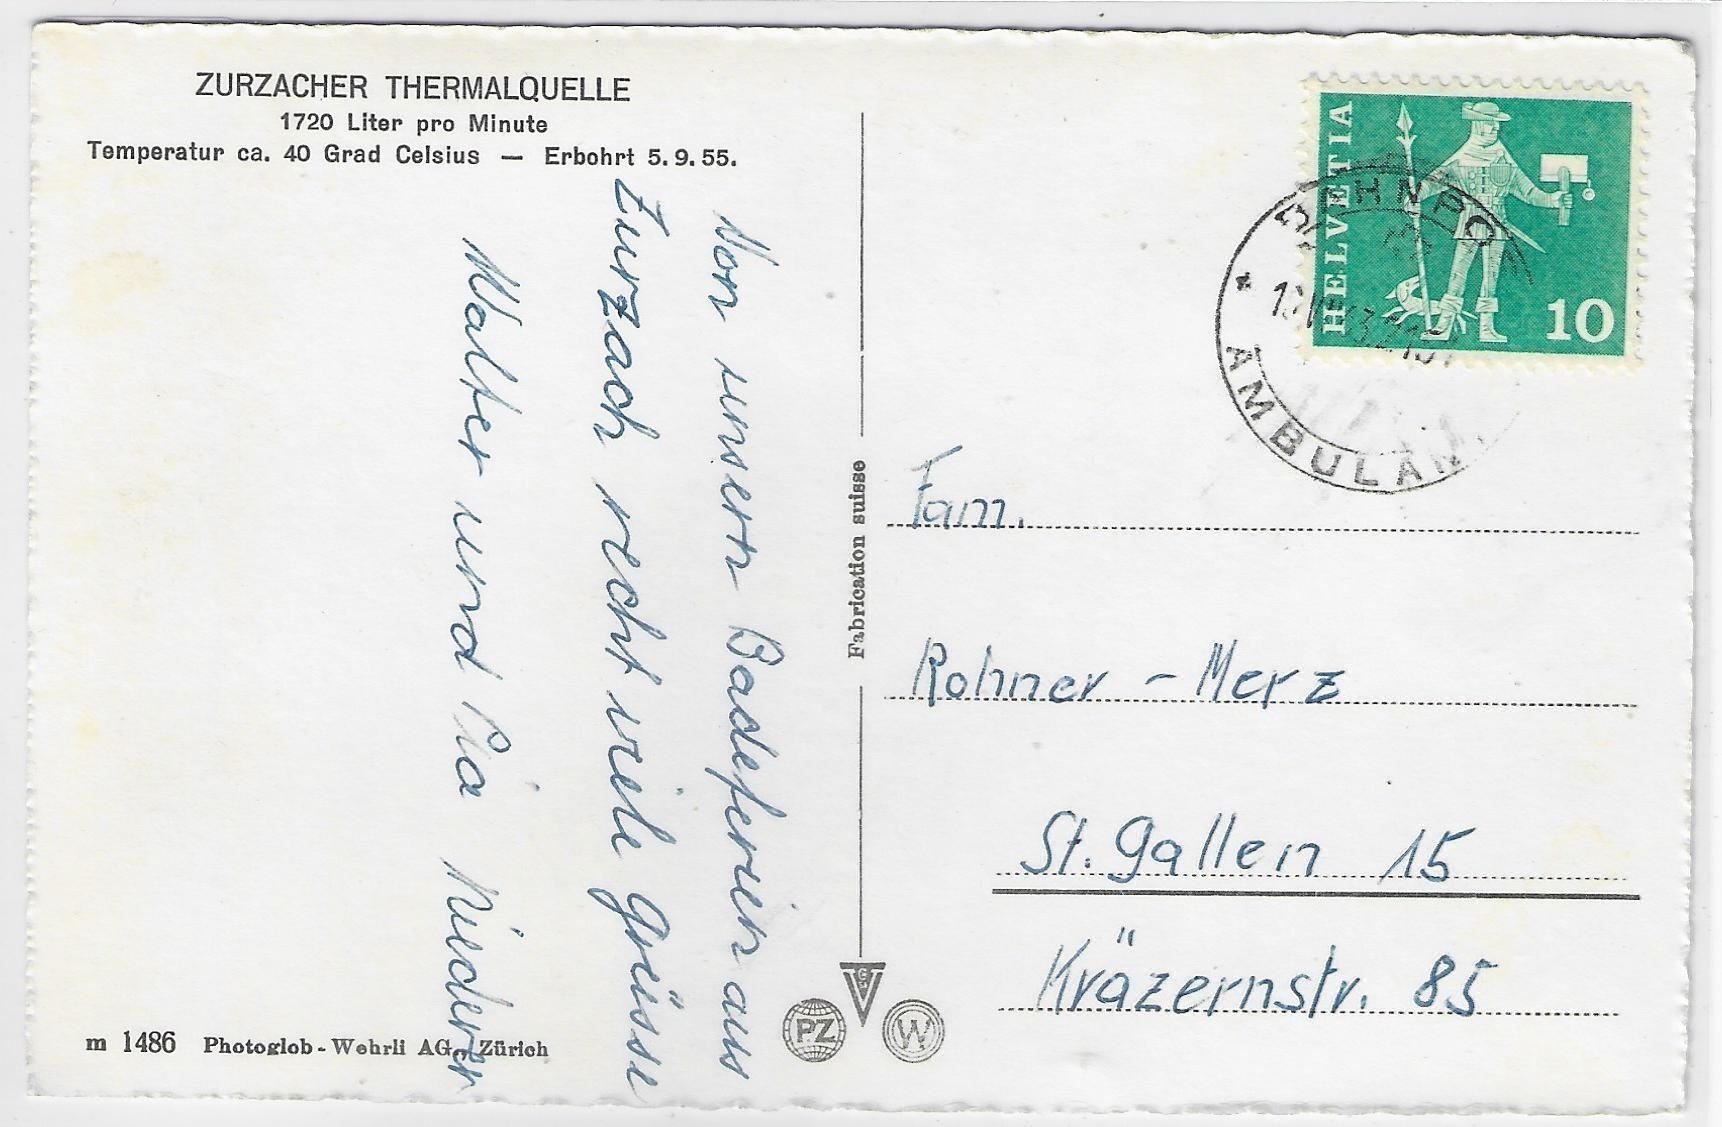 ZURZACHER THERMALQUELLE
1720 Liter pro Minute
Temperatur ca. 40 Grad Celsius — Erbohrt 5.9.55.
Von unsern Badeferien aus
Zurzach recht viele Grüsse
Walter und Pia Niederer
Fabrication suisse
HELVETIA
10
BAHNPO
AMBULAN
Fam.
Rohner - Merz
St. Gallen 15
Kräzernstr. 85
m 1486 Photoglob-Wehrli AG., Zürich
PZ
W